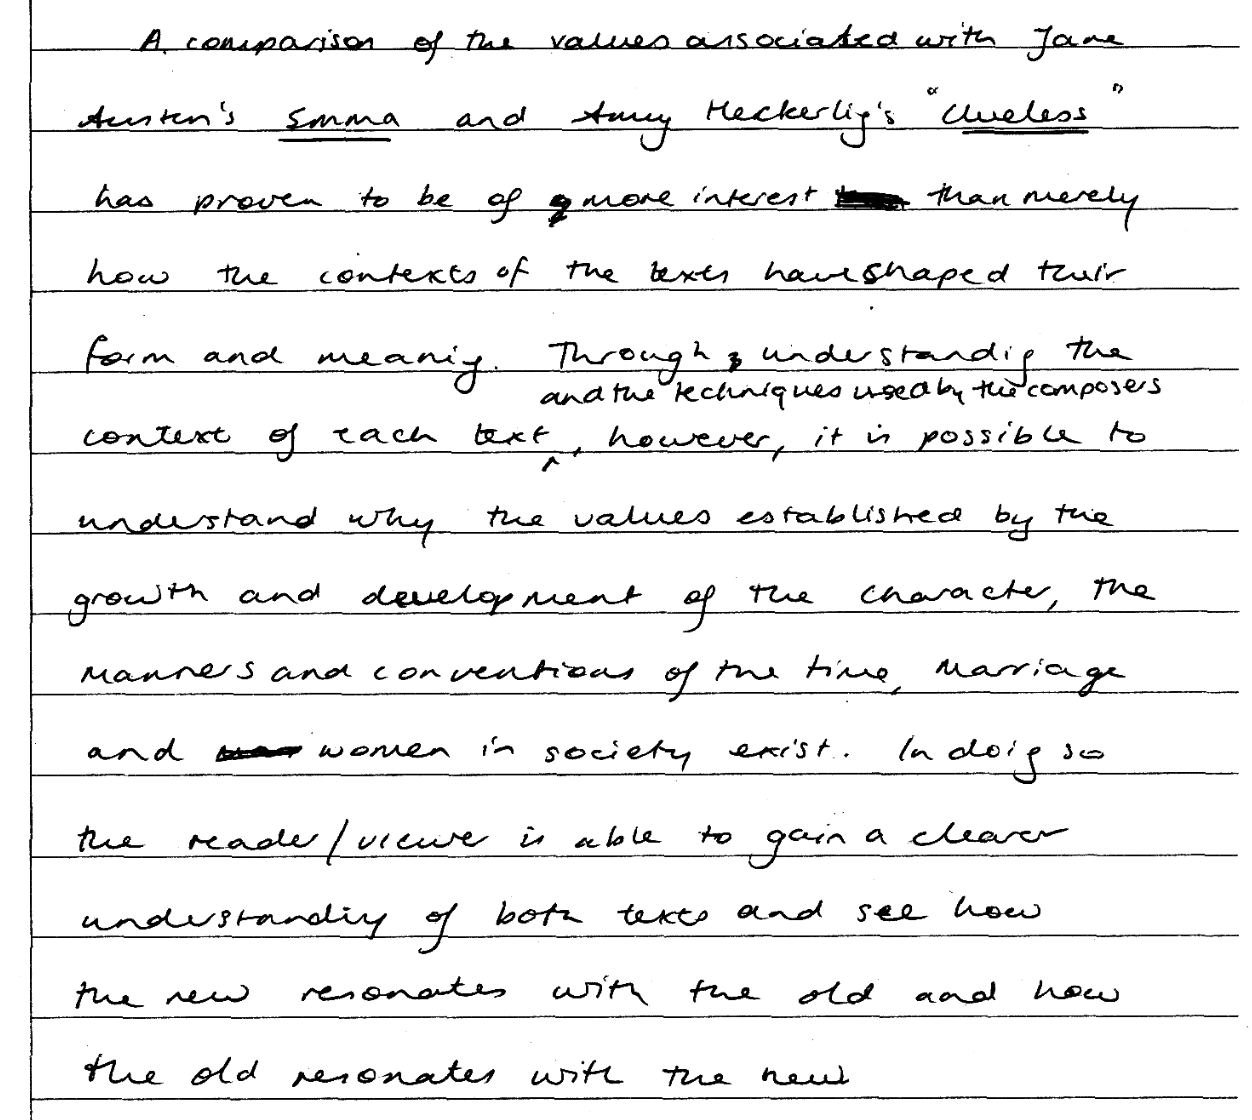 A comparison of the values associated with Jane
Austen's Emma and Amy Heckerlig's "Clueless"
has proven to be of more interest than merely
how the contexts of the texts have shaped their
form and meaning. Through understanding the
and the techniques used by the composers
context of each text, however, it is possible to
understand why the values established by the
growth and development of the character, the
manners and conventions of the time, marriage
and women in society exist. In doing so
the reader/viewer is able to gain a clearer
understanding of both texts and see how
the new resonates with the old and how
the old resonates with the new